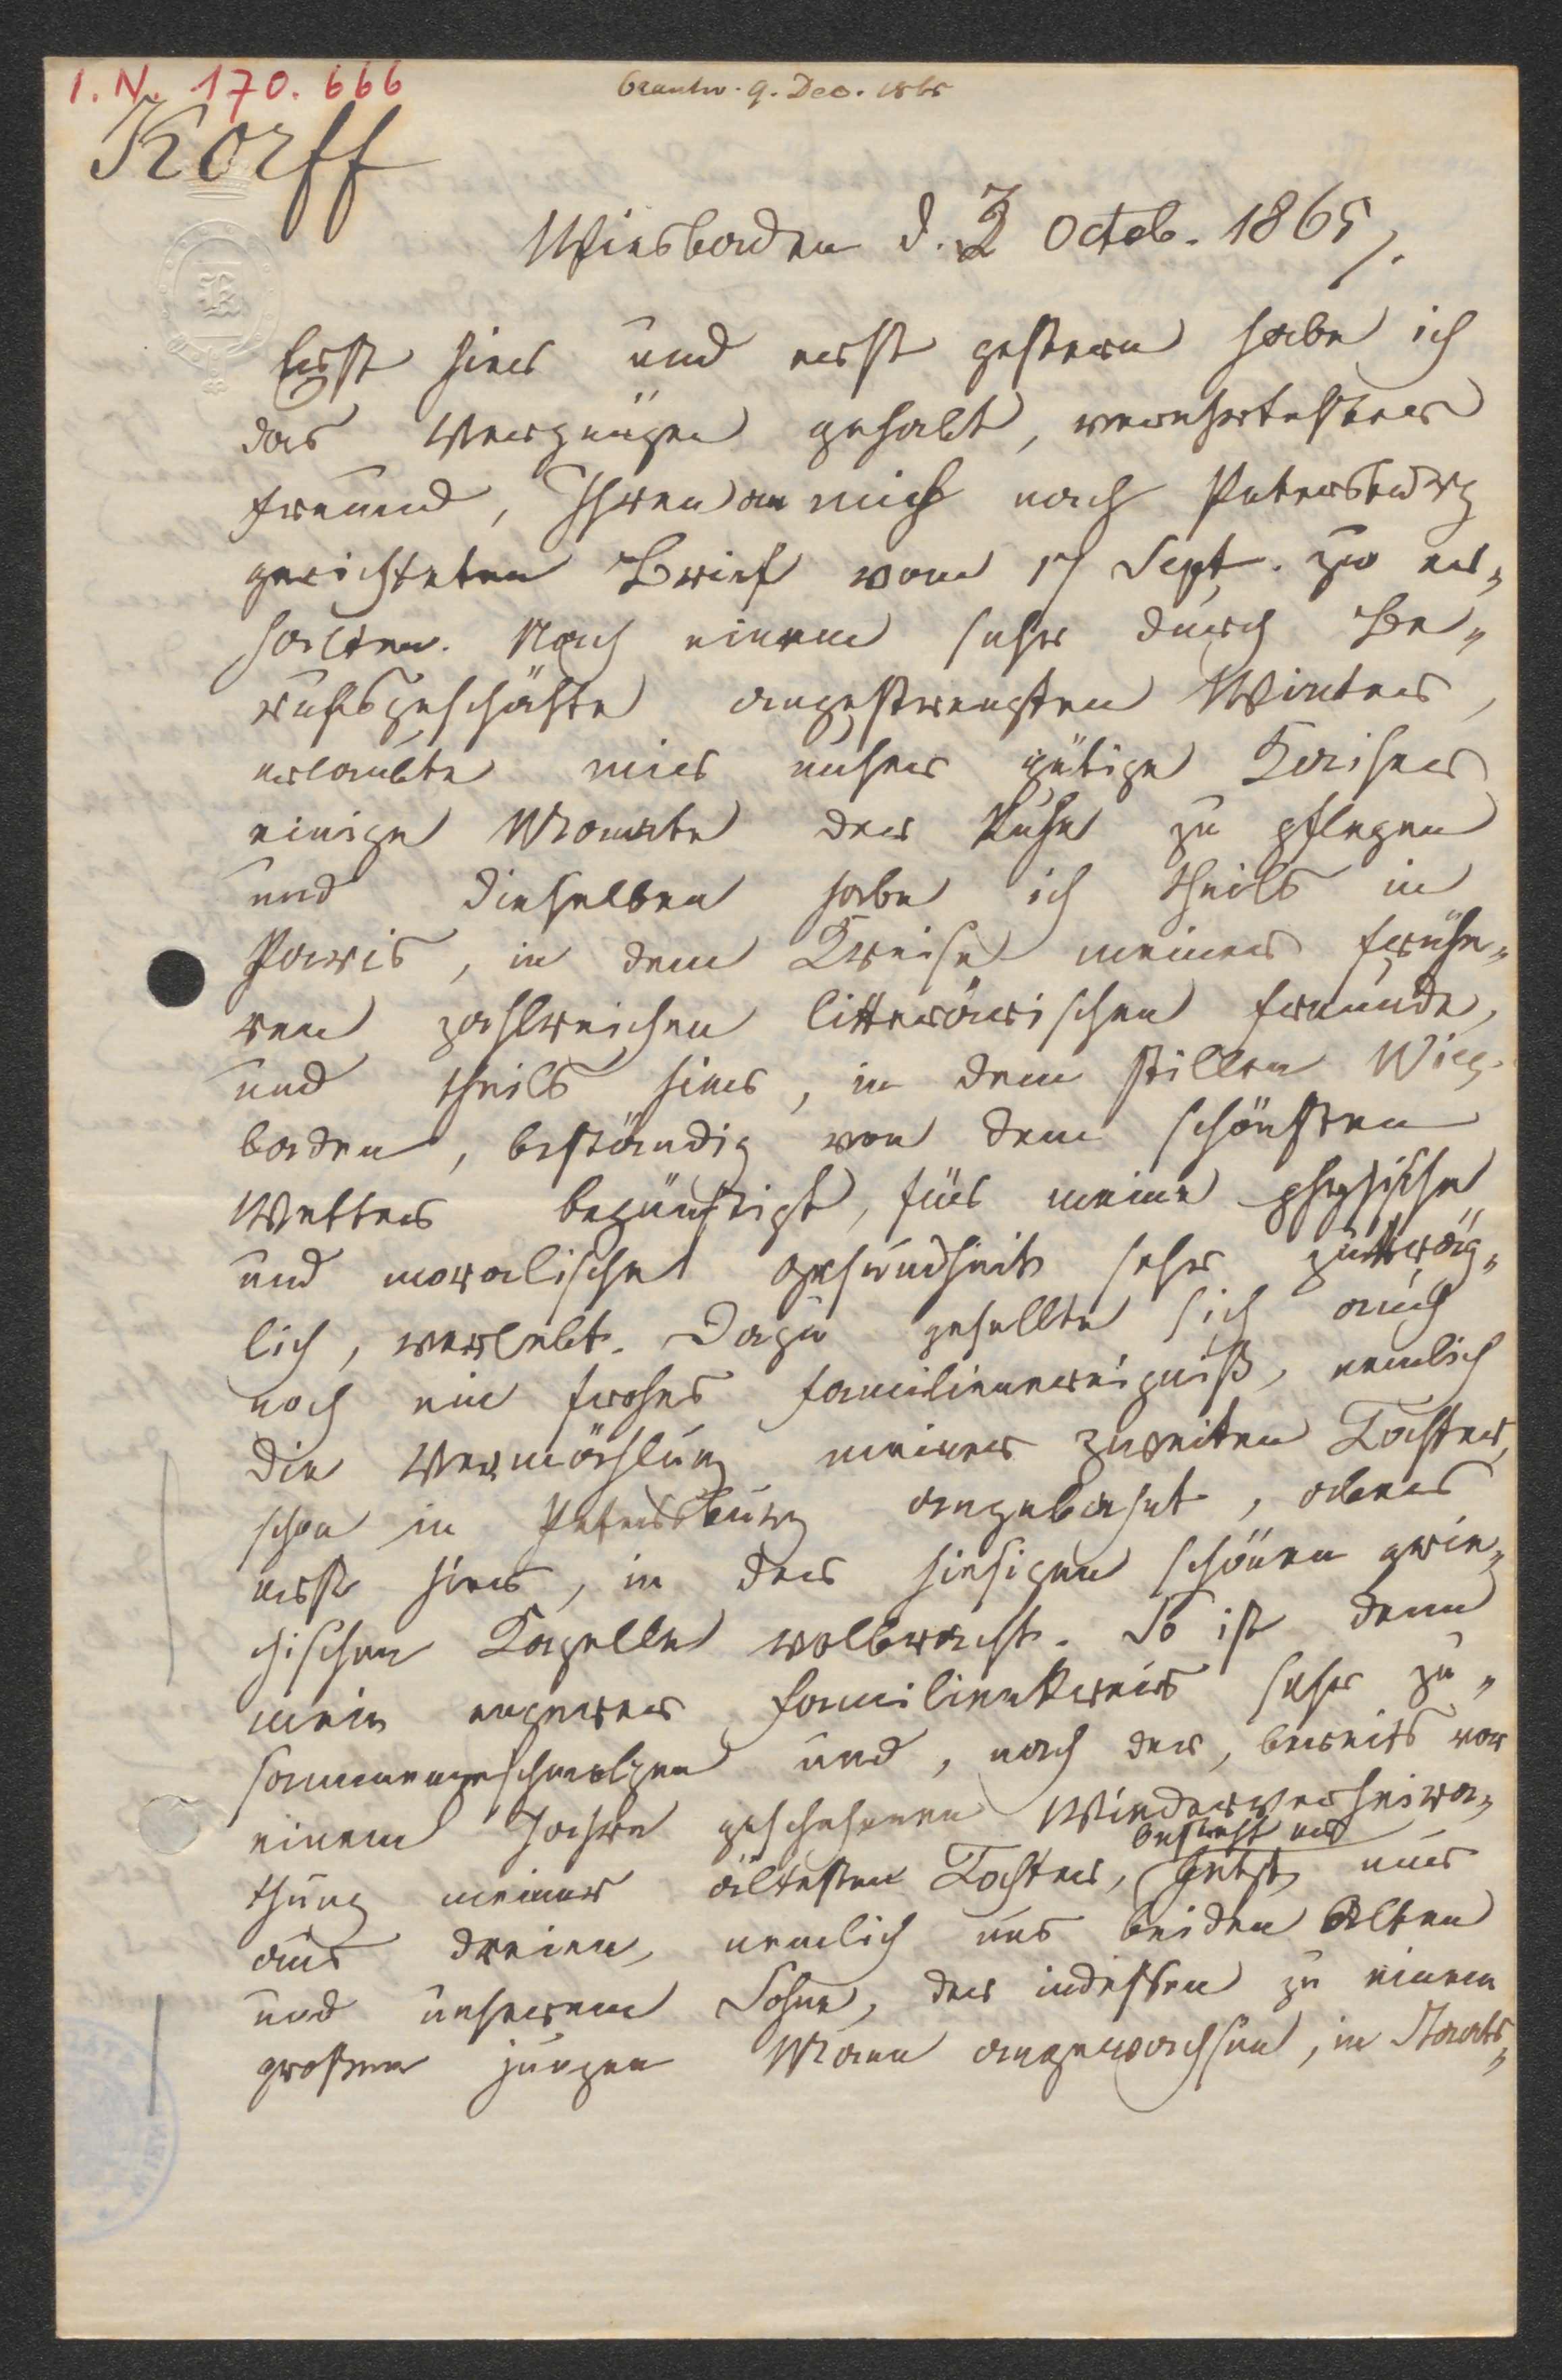 I. N. 170.666
beantw. 9. Dec. 1865
Korff
Wiesbaden d. 2 Octob. 1865/.
Erst hier und erst gestern habe ich
das Vergnügen gehabt, verehrtester
Freund, Ihren an mich nach Petersburg
gerichteten Brief vom 17 Sept. zu er„
halten. Nach einem sehr durch Be„
rufsgeschäfte angestrengten Winter,
erlaubte mir unser gütige Kaiser
einige Monate der Ruhe zu pflegen
und dieselben habe ich theils in
Paris, in dem Kreise meiner frühe„
ren zahlreichen litterärischen Freunde,
und theils hier, in dem stillen Wies-
baden, beständig von dem schönsten
Wetter begünstigt, für meine physische
und moralische Gesundheit sehr zuträg„
lich, verlebt. Dazu gesellte sich auch
noch ein frohes Familienereigniß, nemlich
die Vermählung meiner zweiten Tochter,
schon in Petersburg angebahnt, aber
erst hier, in der hiesigen schönen grie„
chischen Kapelle vollbracht. So ist denn
mein engerer Familienkreis sehr zu„
sammengeschmolzen und, nach der, bereits vor
einem Jahre geschehenen Wiederverheira„
besteht er
thung meiner ältesten Tochter, jetzt nur
aus dreien, nemlich uns beiden Alten
und unserem Sohne, der indessen zu einem
großen jungen Mann angewachsen, in Staats„
WIEN